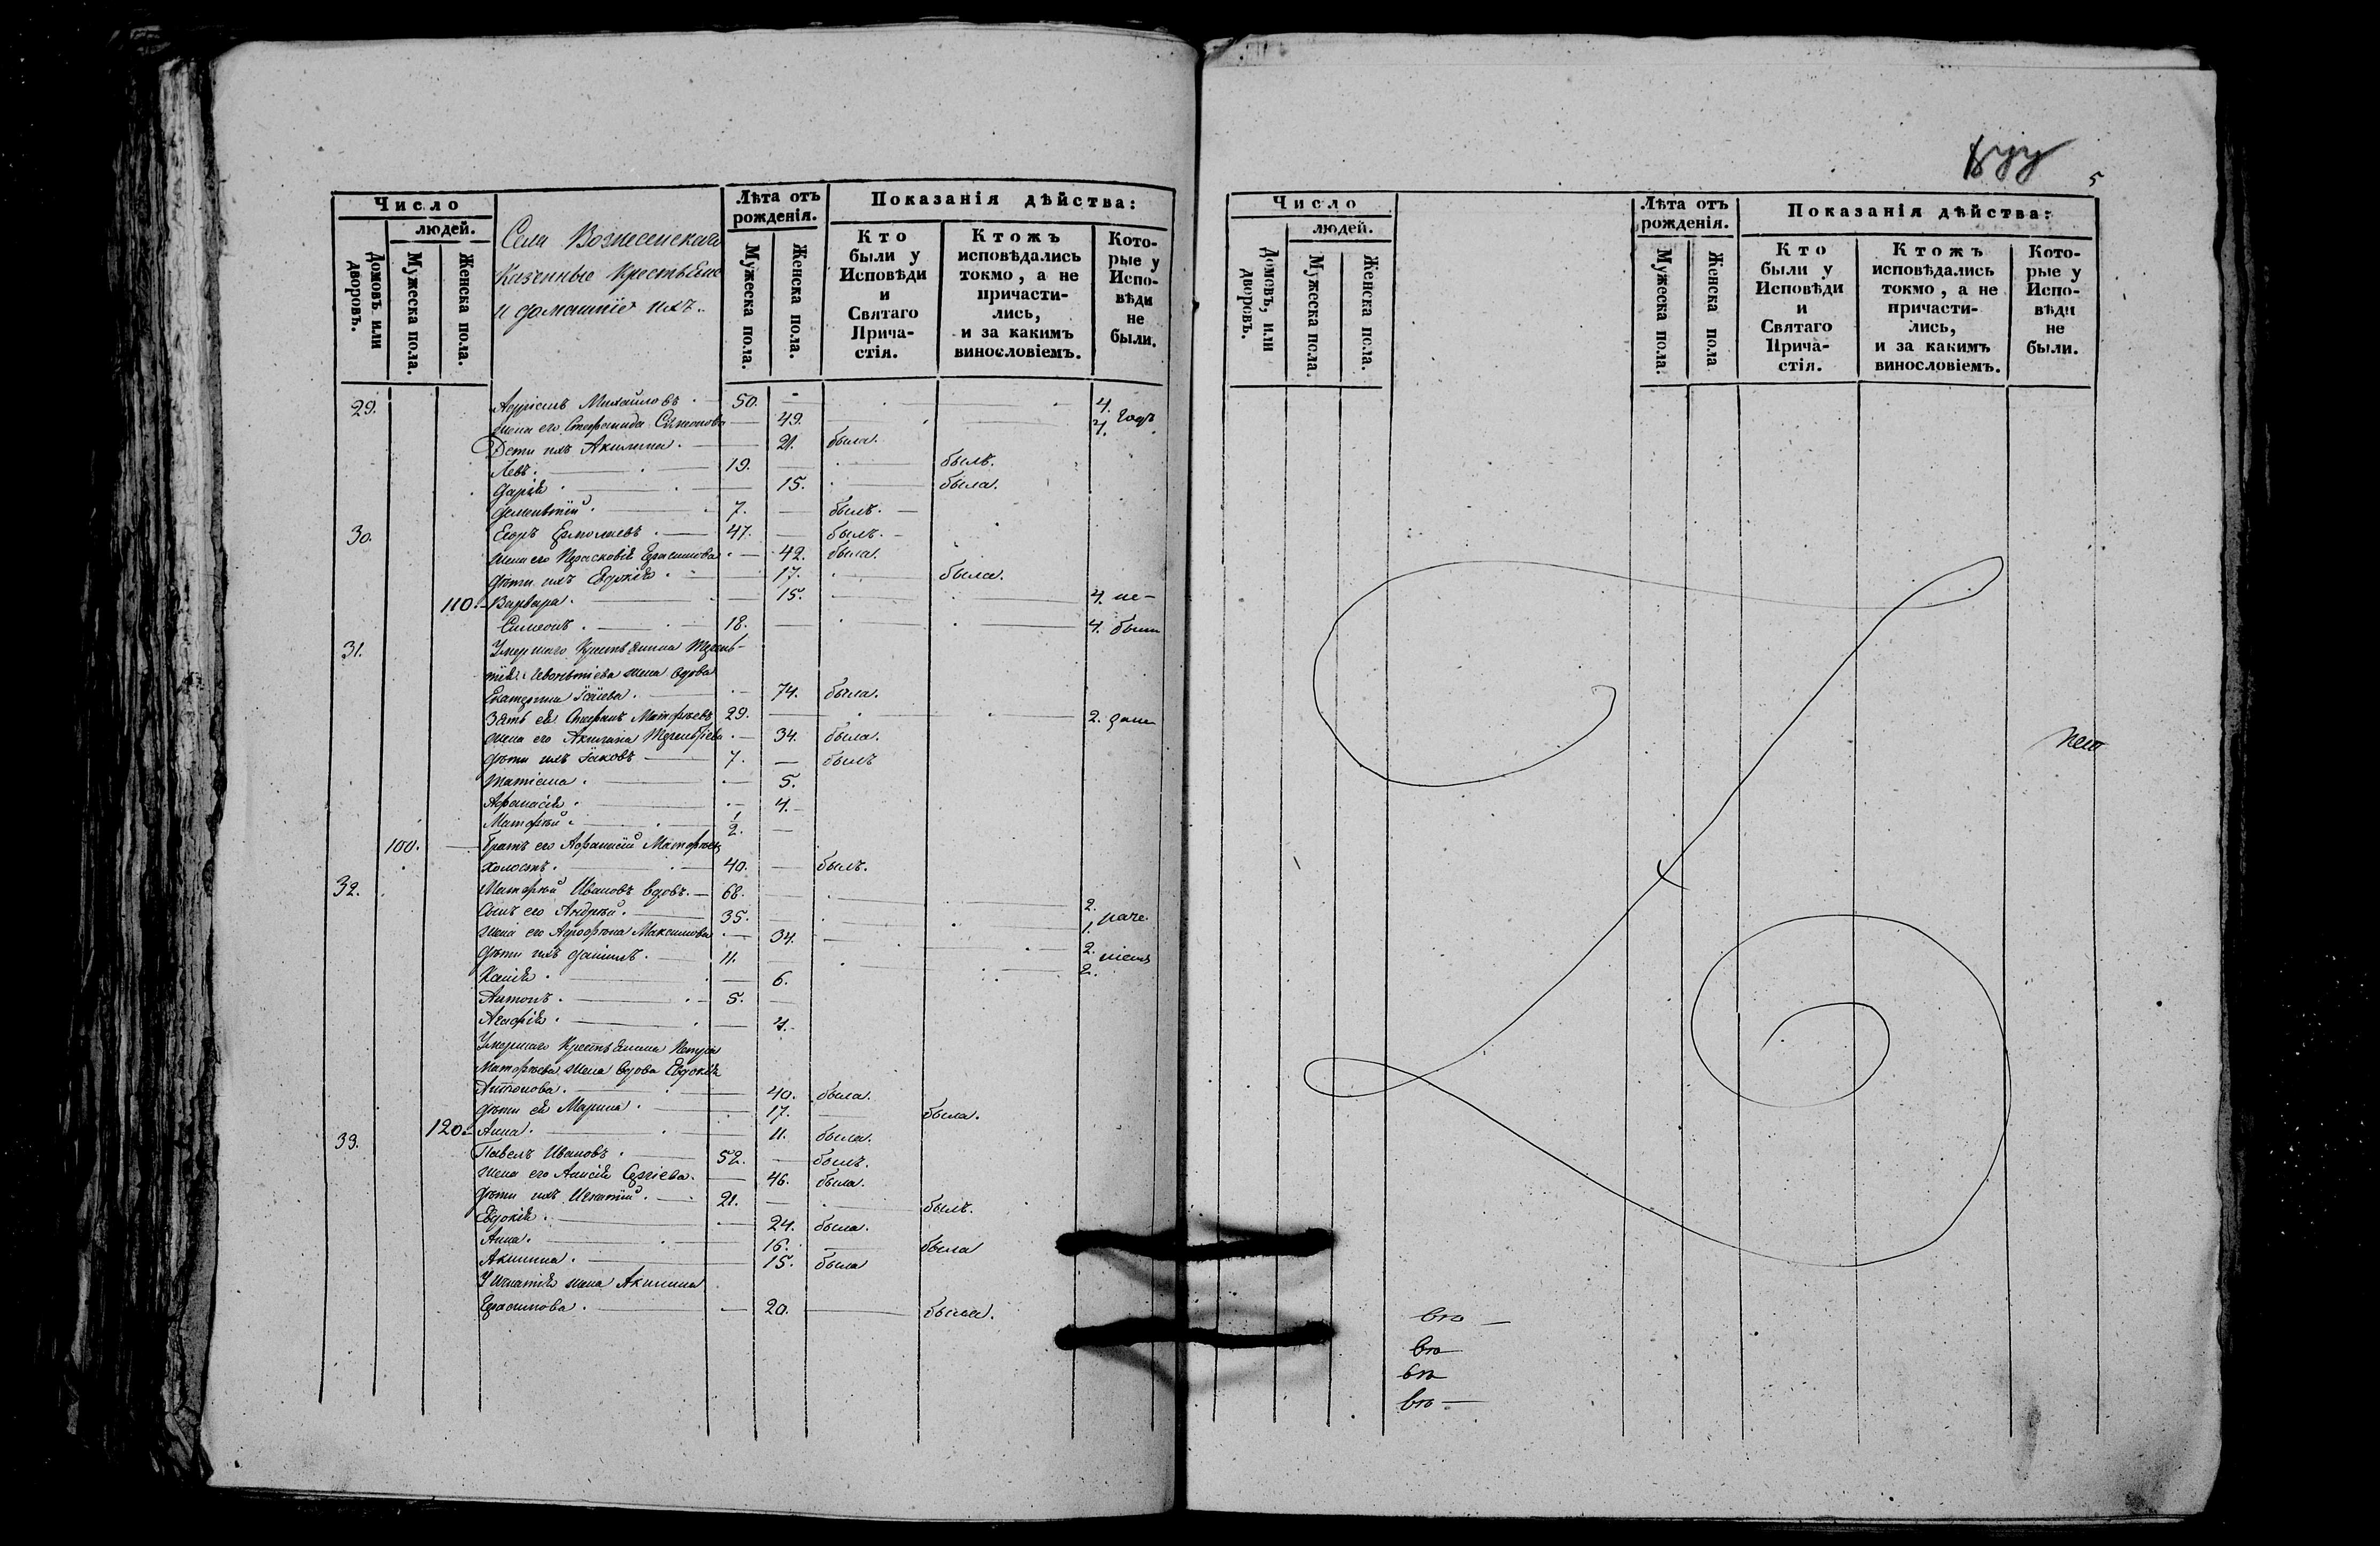 Число
людей.
Домовъ или дворовъ.
Мужеска пола.
Женска пола.
Села Вознесенскаго
Казенные Крестьяне
и домашніе ихъ.
Лѣта отъ рожденія.
Мужеска пола.
Женска пола.
Показанія дѣйства:
Кто были у Исповѣди и Святаго Прича-стія.
Ктожъ исповѣдались токмо, а не причасти-лись, и за какимъ винословіемъ.
Кото-рые у Испо-вѣди не были.
29. Михайловъ 50. 4.
жена его Стефанида 49. 4. годъ
Дети ихъ Акилина 21. была.
Левъ. 19. былъ.
Дарія 15. была.
Дементій. 7. былъ.
30. Егоръ Ермолаевъ 47. былъ.
жена его Прасковія Герасимова 42. была.
дѣти ихъ Евдокія 17. была.
110. Варвара. 15. 4. не-
Симеонъ. 18. 4. были
31. Умершаго Крестьянина Терень-
тія Леонтіева жена вдова
Екатерина 74. была.
Зять ея Стефанъ Матфѣевъ 29. 2.
жена его Акилина Терентьева 34. была.
дѣти ихъ Іаковъ 7. былъ
Татіана. 5.
Афанасія 4.
Матфѣй 1/2.
100. братъ его Афанасій Матфѣевъ
холостъ. 40. былъ.
32. Матфѣй Ивановъ вдовъ. 68. 2.
Сынъ его Андрей. 35. 1.
жена его Максимова 34. 2.
дѣти ихъ Даніилъ. 11. 2.
Ксенія 6.
Антонъ. 5.
Агафія 4.
Умершаго Крестьянина Петра
Матфѣева жена вдова Евдокія
Антонова. 40. была.
дѣти ея Марина 17. была.
120. Анна. 11. была.
33. Павелъ Ивановъ 52. былъ.
жена его Сергіева. 46. была.
дѣти ихъ Игнатій. 21. былъ.
Евдокія. 24. была.
Анна. 16. была
Акилина. 15. была
У Игнатія жена Акилина
Герасимова. 20. была.
5
Число
людей.
Домовъ, или дворовъ.
Мужеска пола.
Женска пола.
Лѣта отъ рожденія.
Мужеска пола.
Женска пола
Показанія дѣйства:
Кто были у Исповѣди и Святаго Прича-стія.
Ктожъ исповѣдались токмо, а не причасти-лись, и за какимъ винословіемъ.
Кото-рые у Испо-вѣди не были.